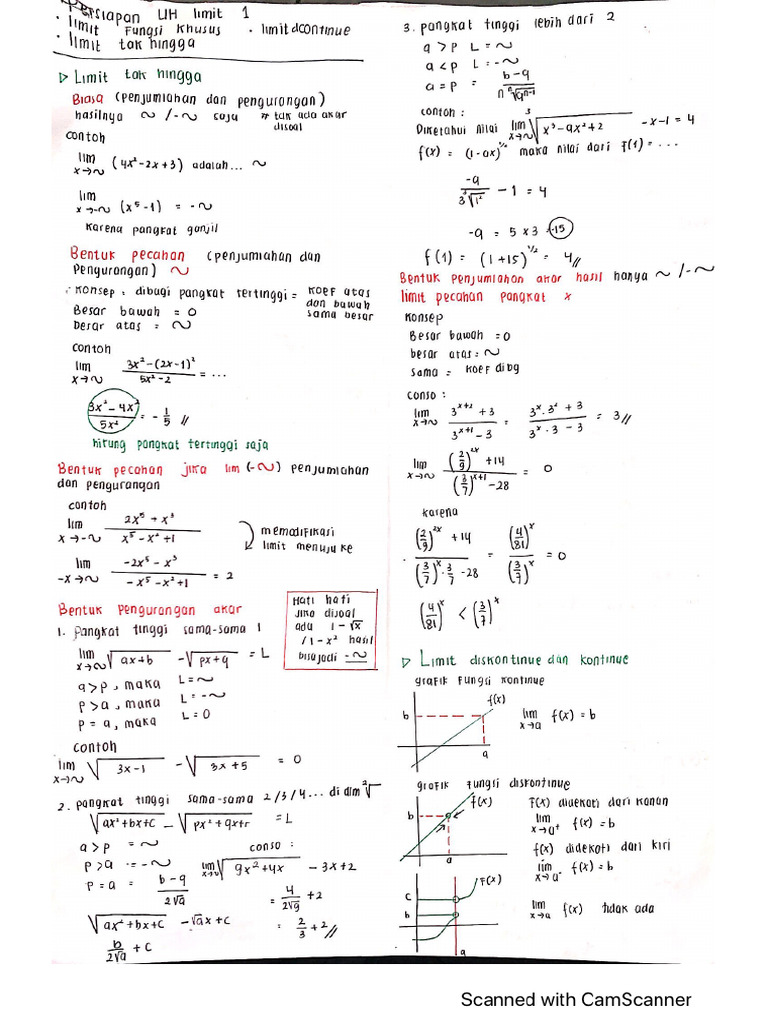 Persiapan UH limit 1
· limit Fungsi Khusus · limit dcontinue
· limit tak hingga
▷ Limit tak hingga
Biasa (penjumlahan dan pengurangan)
hasilnya ~ /-~ saja # tak ada akar disoal
contoh
lim x→~ (4x²-2x+3) adalah... ~
lim x→-~ (x⁵-1) = -~
karena pangkat ganjil
Bentuk pecahan (penjumlahan dan
Pengurangan) ~
· Konsep : dibagi pangkat tertinggi = koef atas dan bawah sama besar
Besar bawah = 0
Besar atas = ~
contoh
lim x→~ 3x²-(2x-1)² / 5x²-2 = ...
3x²-4x² / 5x² = -1/5 //
hitung pangkat tertinggi saja
Bentuk pecahan jika lim (-~) penjumlahan
dan pengurangan
contoh
lim x→-~ 2x⁵+x³ / x⁵-x²+1
memodifikasi
limit menuju ke
lim -x→~ -2x⁵-x³ / -x⁵-x²+1 = 2
Bentuk Pengurangan akar
Hati hati
jika disoal
ada 1-√x
/ 1-x² hasil
bisa jadi -~
1. Pangkat tinggi sama-sama 1
lim x→~ √ax+b - √px+q = L
a>p, maka L=~
p>a, maka L=-~
p=a, maka L=0
contoh
lim x→~ √3x-1 - √3x+5 = 0
2. pangkat tinggi sama-sama 2/3/4... di dlm ²√
√ax²+bx+c - √px²+qx+r = L
a>p = ~
p>a = -~
p=a = b-q / 2√a
√ax²+bx+c - √ax+c
b/2√a + c
conso :
lim x→~ √9x²+4x - 3x+2
= 4/2√9 +2
= 2/3 +2 //
3. pangkat tinggi lebih dari 2
a>p L=~
a<p L=-~
a=p = b-q / n ⁿ√aⁿ⁻¹
contoh :
Diketahui nilai lim x→~ ³√x³-ax²+2 -x-1=4
f(x) = (1-ax)^½ maka nilai dari f(1)=...
-a / 3³√1² -1=4
-a = 5x3 = -15
f(1) = (1+15)^½ = 4 //
Bentuk penjumlahan akar hasil hanya ~ /-~
limit pecahan pangkat x
Konsep
Besar bawah =0
besar atas = ~
sama = koef dibg
conso :
lim x→~ 3ˣ⁺²+3 / 3ˣ⁺¹-3 = 3ˣ.3²+3 / 3ˣ.3-3 = 3 //
lim x→~ (2/9)²ˣ+14 / (3/7)ˣ⁺¹-28 = 0
karena
(2/9)²ˣ+14 / (3/7)ˣ.3/7-28 = (4/81)ˣ / (3/7)ˣ = 0
(4/81)ˣ < (3/7)ˣ
▷ Limit diskontinue dan kontinue
grafik fungsi kontinue
f(x)
b
a
lim x→a f(x) = b
grafik Fungsi diskontinue
f(x)
b
a
F(x) didekati dari kanan
lim x→a⁺ f(x) = b
f(x) didekati dari kiri
lim x→a⁻ f(x) = b
F(x)
c
b
a
lim x→a f(x) tidak ada
Scanned with CamScanner